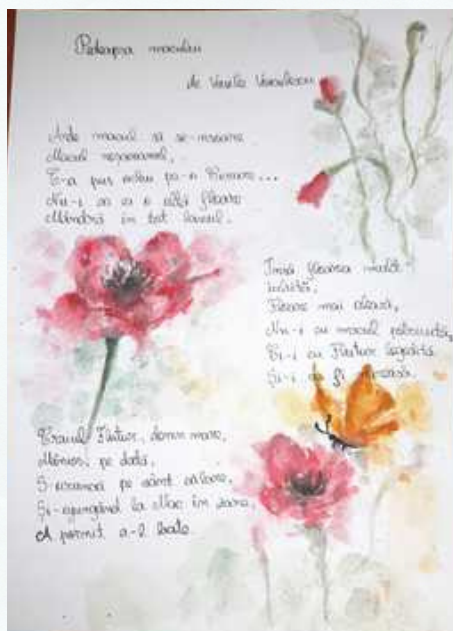 Pedeapsa macului
de Vasile Voiculescu
Arde macul să se-nsoare
Macul
C-a pus ochiu pe-o floare...
Nu-i ca ea o altă floare
Mândră în tot lanul.
Însă floarea mult
iubită,
Floare mai aleasă,
Nu-i cu macul potrivită,
Ci-i cu Flutur logodită
Și-i va fi mireasă.
Craiul Flutur, domn mare,
Mânios pe dată,
S-aruncă pe
Și-ajungând la Mac în zare,
A pornit a-l bate.